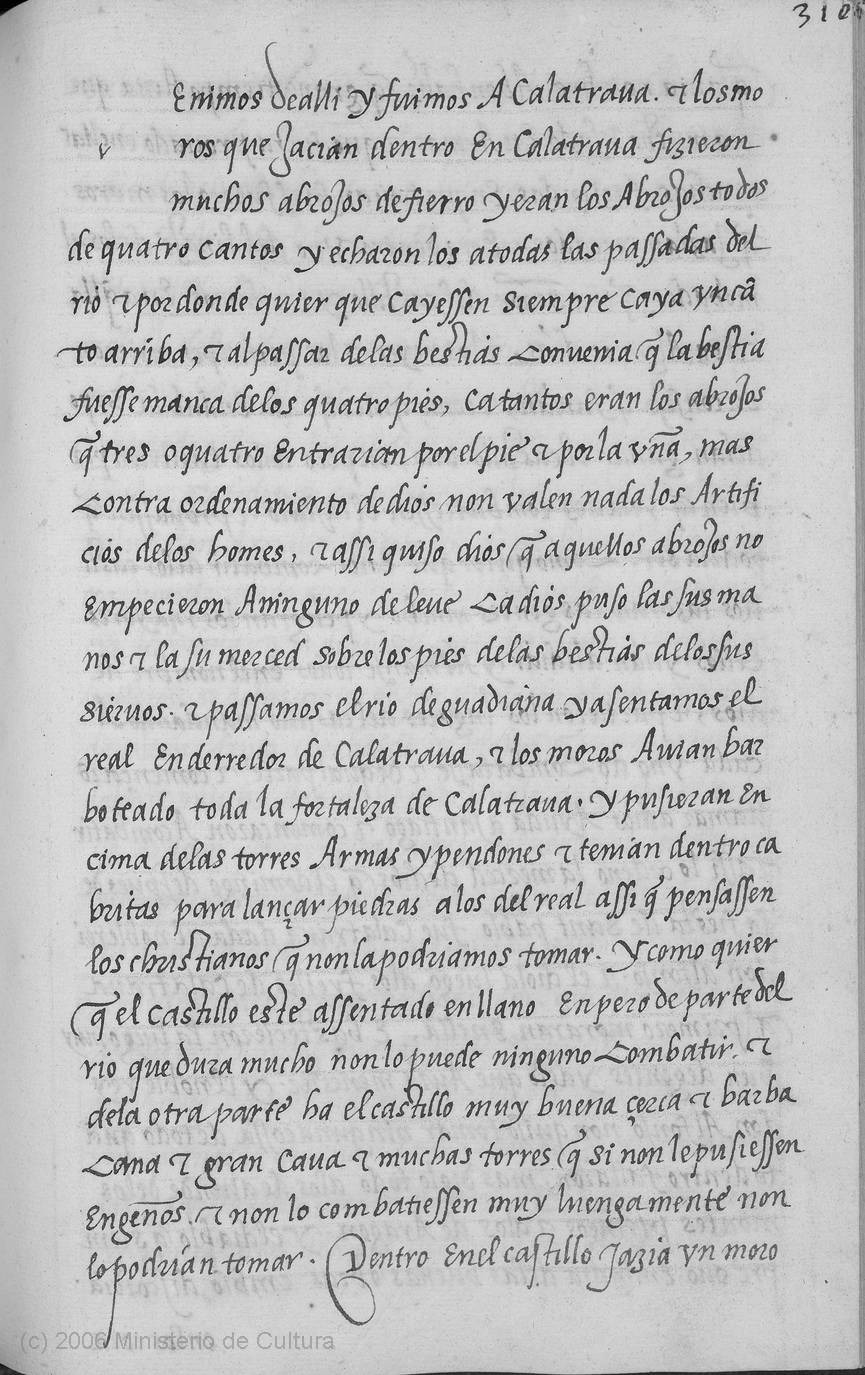 310
Enimos dealli y fuimos A Calatraua. τ losmo
v ros que Jacian dentro En Calatraua fizieron
muchos abroJos defierro yeran los AbroJos todos
de quatro cantos yecharon los atodas las passadas del
rio τ por donde quier que Cayessen siempre Caya yncã
to arriba, τ alpassar delas bestias Conuenia q̃ la bestia
fuesse manca delos quatro pies, Ca tantos eran los abroJos
q̃ tres o quatro Entrarian por el pie τ por la vña, mas
Contra ordenamiento dedios non valen nada los Artifi
cios delos homes, τ assi quiso dios q̃ aquellos abroJos no
Empecieron Aninguno deleue Ca dios puso las sus ma
nos τ la su merced sobre los pies delas bestias delos sus
sieruos. τ passamos el rio deguadiana yasentamos el
real Enderredor de Calatraua, τ los moros Auian bar
boteado toda la fortaleza de Calatraua. Y pusieran En
cima delas torres Armas ypendones τ tenian dentro ca
britas para lançar piedras alos del real assi q̃ pensassen
los christianos q̃ nonlapodriamos tomar. Y como quier
q̃ el castillo este assentado en llano Enpero de parte del
rio que dura mucho non lo puede ninguno Combatir. τ
dela otra parte ha el castillo muy buena çerca τ barba
Cana τ gran Caua τ muchas torres q̃ si non le pusiessen
Engeños. τ non lo combatiessen muy luengamente non
lo podrian tomar. Dentro Enel castillo Jazia yn moro
(c) 2006 Ministerio de Cultura